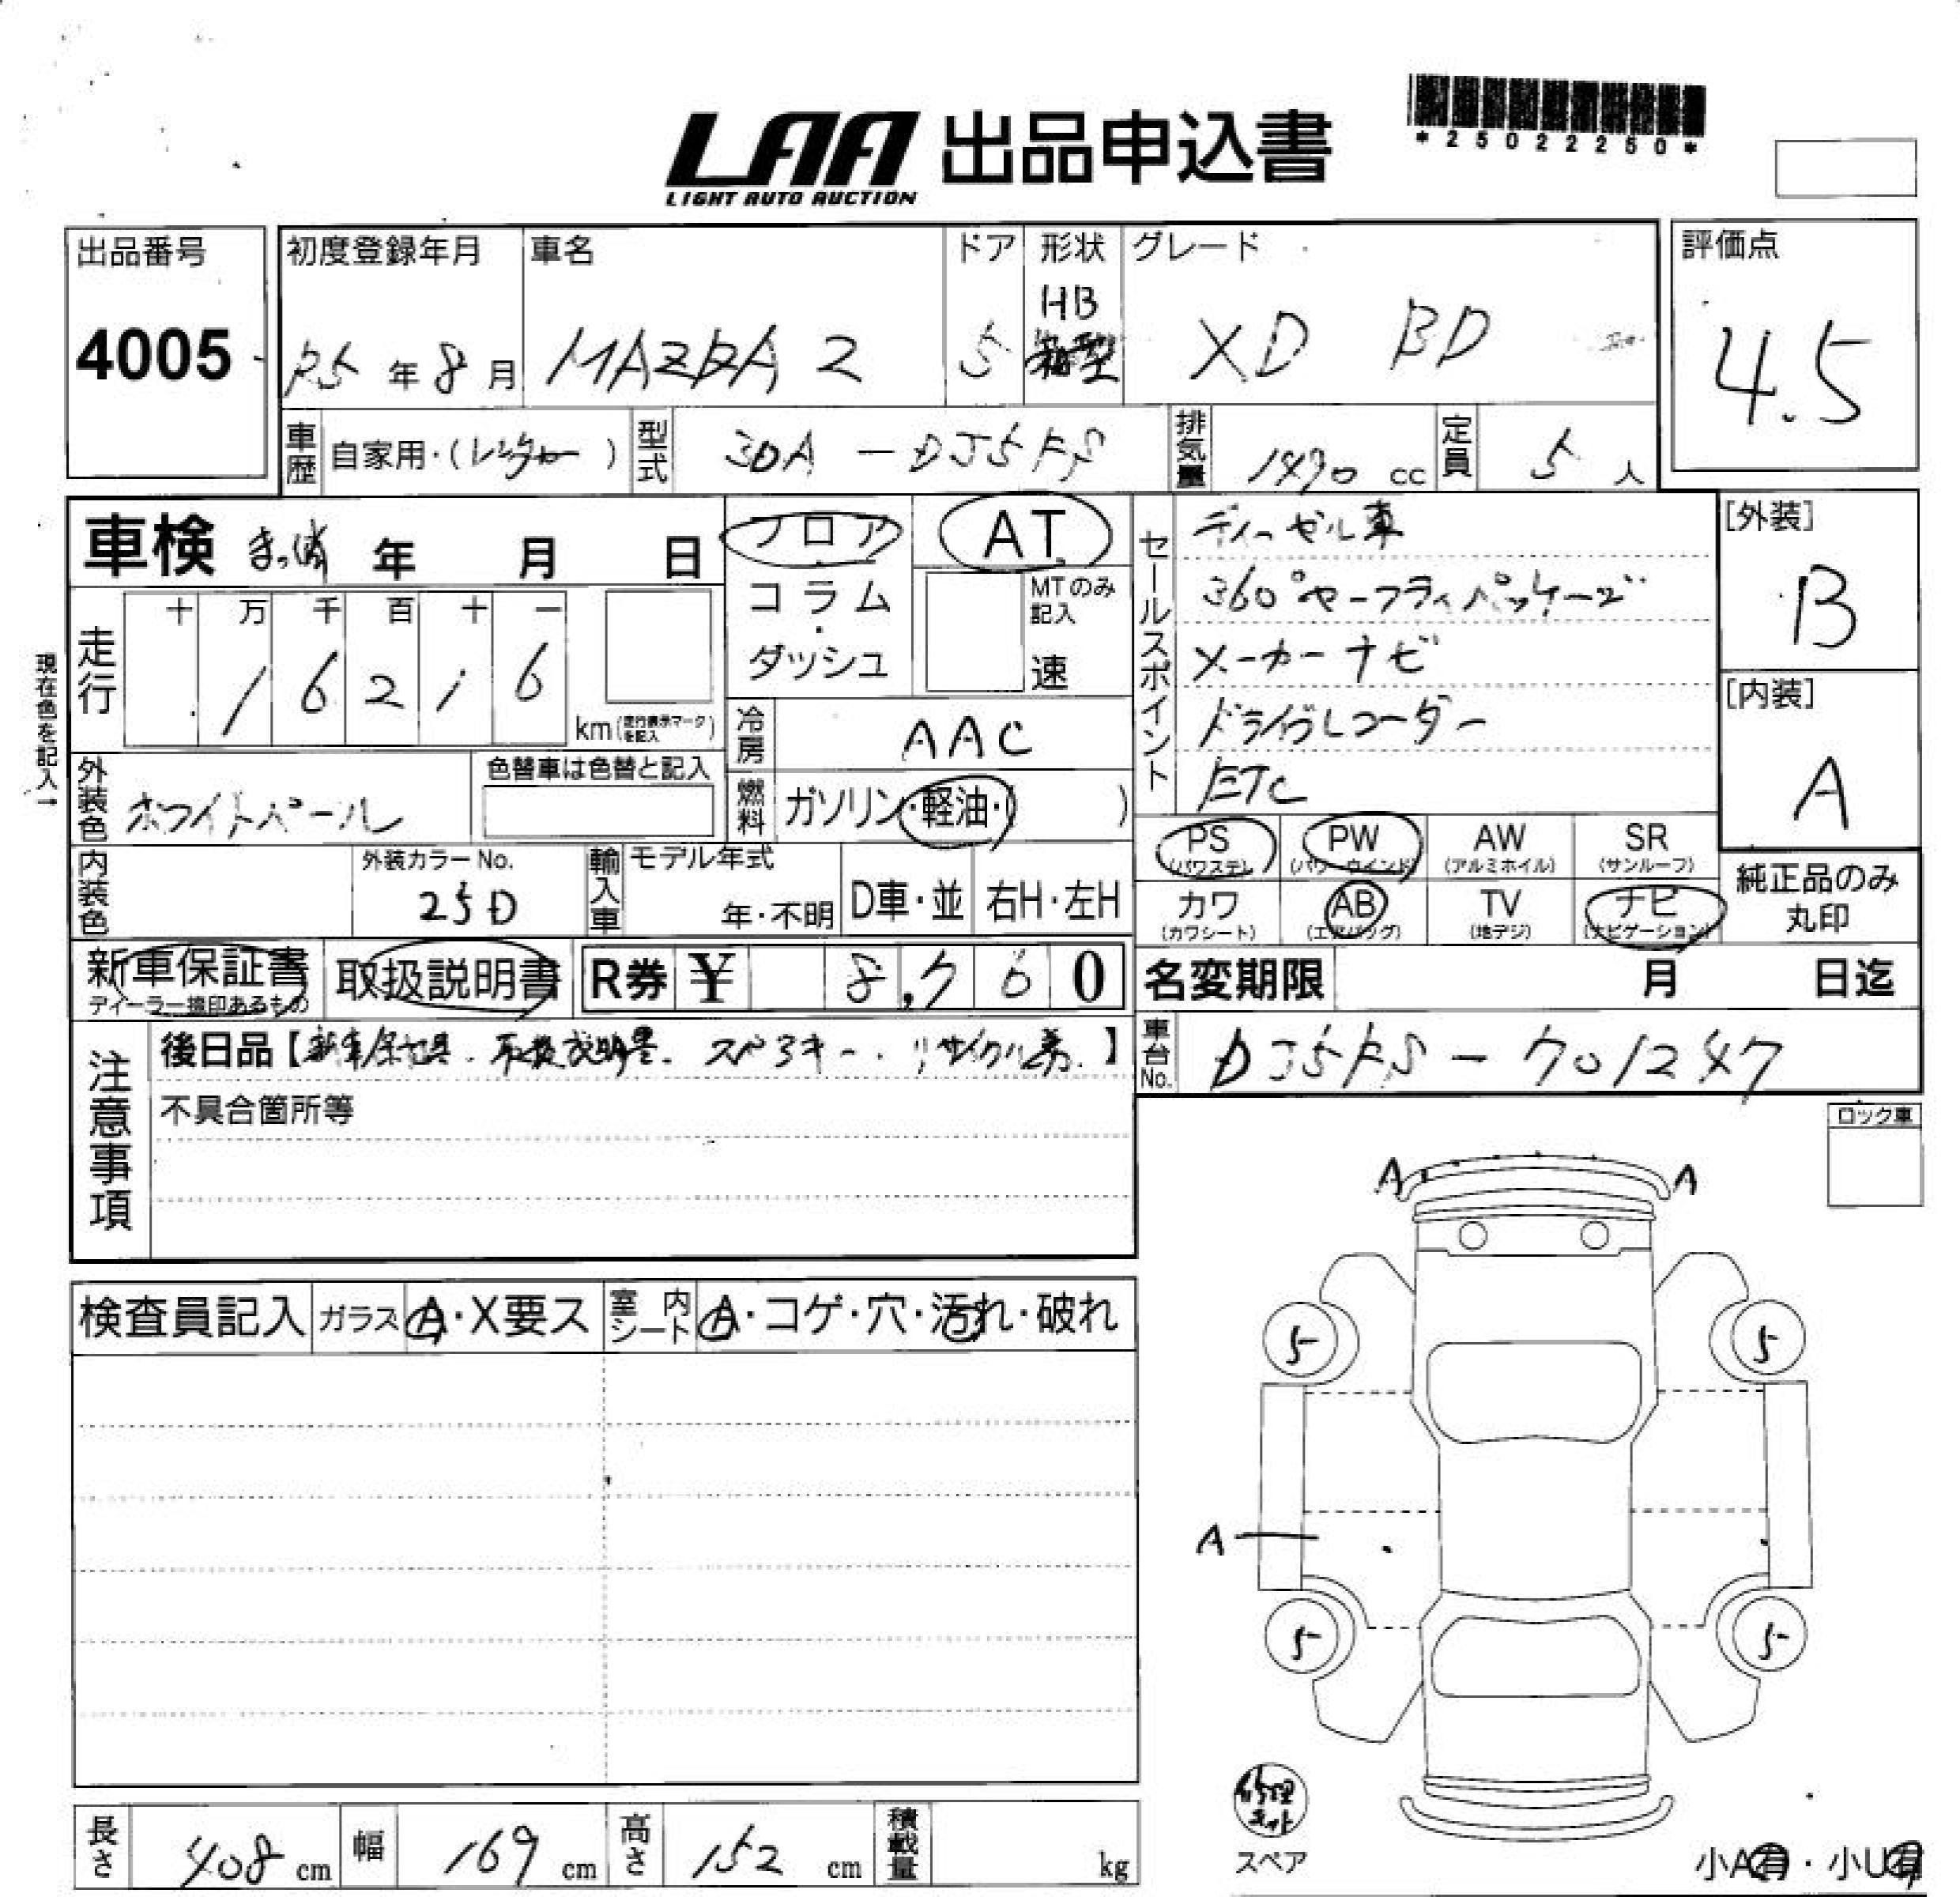 LAA 出品申込書
LIGHT AUTO AUCTION
*25022250*
出品番号
4005
初度登録年月
R5年8月
車名
MAZDA 2
ドア
5
形状
HB
箱型
グレード
XD BD
評価点
4.5
車歴 自家用・(レンタカー)
型式 3DA-DJ5FS
排気量 1490 cc
定員 5 人
車検 まっ消 年 月 日
現在色を記入→
走行
十 万 千 百 十 一
1 6 2 1 6
km(走行表示マークを記入)
フロア・コラム・ダッシュ
AT
MTのみ記入
速
冷房 AAC
燃料 ガソリン・軽油・( )
外装色 ホワイトパール
色替車は色替と記入
内装色
外装カラーNo.
25D
輸入車
モデル年式
年・不明
D車・並
右H・左H
セールスポイント
ディーゼル車
360°セーフティパッケージ
メーカーナビ
ドライブレコーダー
ETC
[外装]
B
[内装]
A
PS (パワステ)
PW (パワーウインド)
AW (アルミホイル)
SR (サンルーフ)
カワ (カワシート)
AB (エアバッグ)
TV (地デジ)
ナビ (ナビゲーション)
純正品のみ丸印
新車保証書
ディーラー捺印あるもの
取扱説明書
R券 ¥ 8,760
名変期限 月 日迄
注意事項
後日品【新車保証書. 取扱説明書. スペアキー. リサイクル券.】
不具合箇所等
車台No. DJ5FS-701247
ロック車
検査員記入
ガラス A・X要ス
室内シート A・コゲ・穴・汚れ・破れ
A A
5 5
A
5 5
修理キット
スペア
長さ 408 cm
幅 169 cm
高さ 152 cm
積載量 kg
小A有・小U有